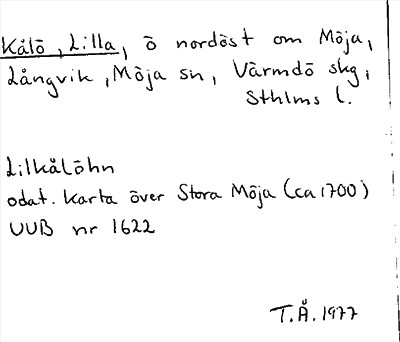 Kålö, Lilla, ö nordöst om Möja,
Långvik, Möja sn, Värmdö skg,
Sthlms l.
Lilkålöhn
odat. karta över Stora Möja (ca 1700)
UUB nr 1622
T.Å. 1977